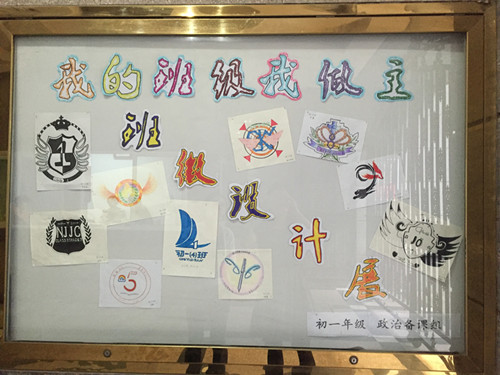 我的班级我做主
班徽设计展
NJJC
初一(4)班
5
10
初一年级 政治备课组